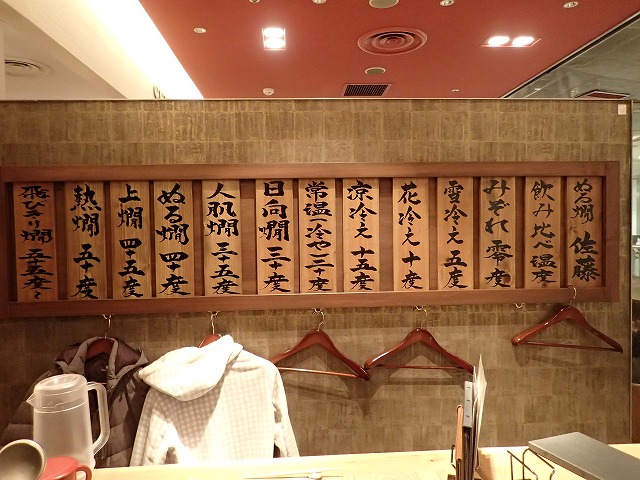 ぬる燗 佐藤
飲み比べ 温度
みぞれ 零度
雪冷え 五度
花冷え 十度
涼冷え 十五度
常温(冷や)二十度
日向燗 三十度
人肌燗 三十五度
ぬる燗 四十度
上燗 四十五度
熱燗 五十度
飛びきり燗 五十五度〜